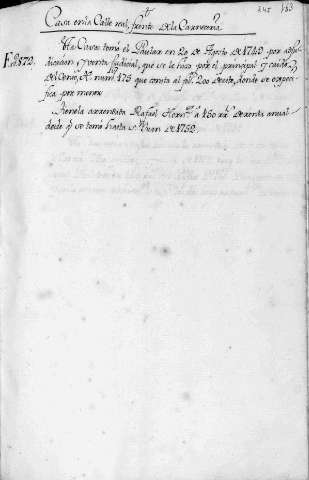 245 183
Casa en la Calle real, frente de la Carniceria
Fo. 872. Ha Casa tomó el Pautar en 29 de Agosto de 1740 por adju-
dicacion y venta Judicial, que se le hizo por el principal y caidos
del Censo, N. num. 175 que consta al fol. 200 de este, donde se especi-
fica por menor
Tienela arrendada Rafael Hernz. a 150 rr. de renta anual
desde q se tomó hasta S. Juan de 1752.